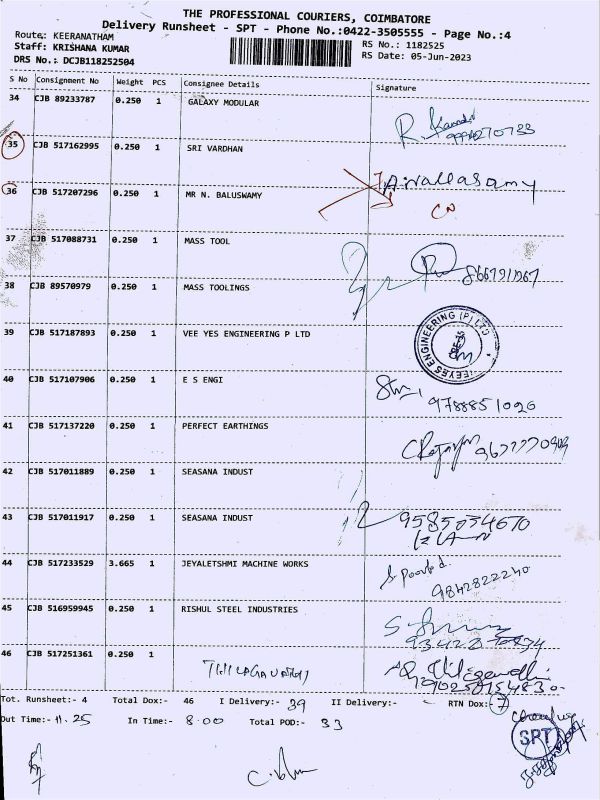 THE PROFESSIONAL COURIERS, COIMBATORE
Delivery Runsheet - SPT - Phone No.:0422-3505555 - Page No.:4
Route: KEERANATHAM
RS No.: 1182525
Staff: KRISHANA KUMAR
RS Date: 05-Jun-2023
DRS No.: DCJB118252504
S No Consignment No Weight PCS Consignee Details Signature
34 CJB 89233787 0.250 1 GALAXY MODULAR
35 CJB 517162995 0.250 1 SRI VARDHAN
36 CJB 517207296 0.250 1 MR N. BALUSWAMY
37 CJB 517088731 0.250 1 MASS TOOL
38 CJB 89570979 0.250 1 MASS TOOLINGS
39 CJB 517187893 0.250 1 VEE YES ENGINEERING P LTD
40 CJB 517107906 0.250 1 E S ENGI
9788851020
41 CJB 517137220 0.250 1 PERFECT EARTHINGS
42 CJB 517011889 0.250 1 SEASANA INDUST
43 CJB 517011917 0.250 1 SEASANA INDUST
9585034670
44 CJB 517233529 3.665 1 JEYALETSHMI MACHINE WORKS
9842822240
45 CJB 516959945 0.250 1 RISHUL STEEL INDUSTRIES
46 CJB 517251361 0.250 1
THILAGAVATHI
Tot. Runsheet:- 4 Total Dox:- 46 I Delivery:- 39 II Delivery:- RTN Dox:- 7
Out Time:- 11.25 In Time:- 8.00 Total POD:- 33
SPT